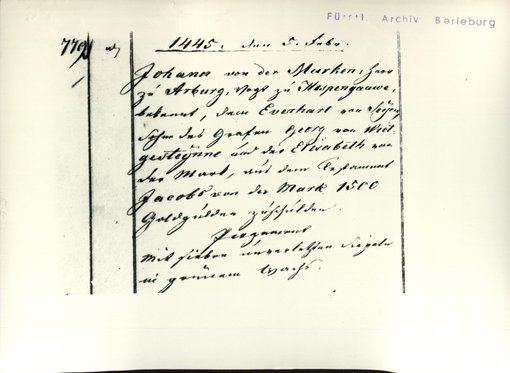 Fürstl. Archiv Berleburg
779 1445. den 5. Febr.
Johann von der Marken, Herr
zu Arburg, Vogt zu Haspengauwe,
bekennt, dem Everhart von Seyn,
Sohn des Grafen Georg von Witt-
gesteynne und der Elisabeth von
der Mark, aus dem Testament
Jacobs von der Mark 1500
Goldgulden zu schulden.
Pergament
mit sieben unverletzten Siegeln
in grünem Wachs.